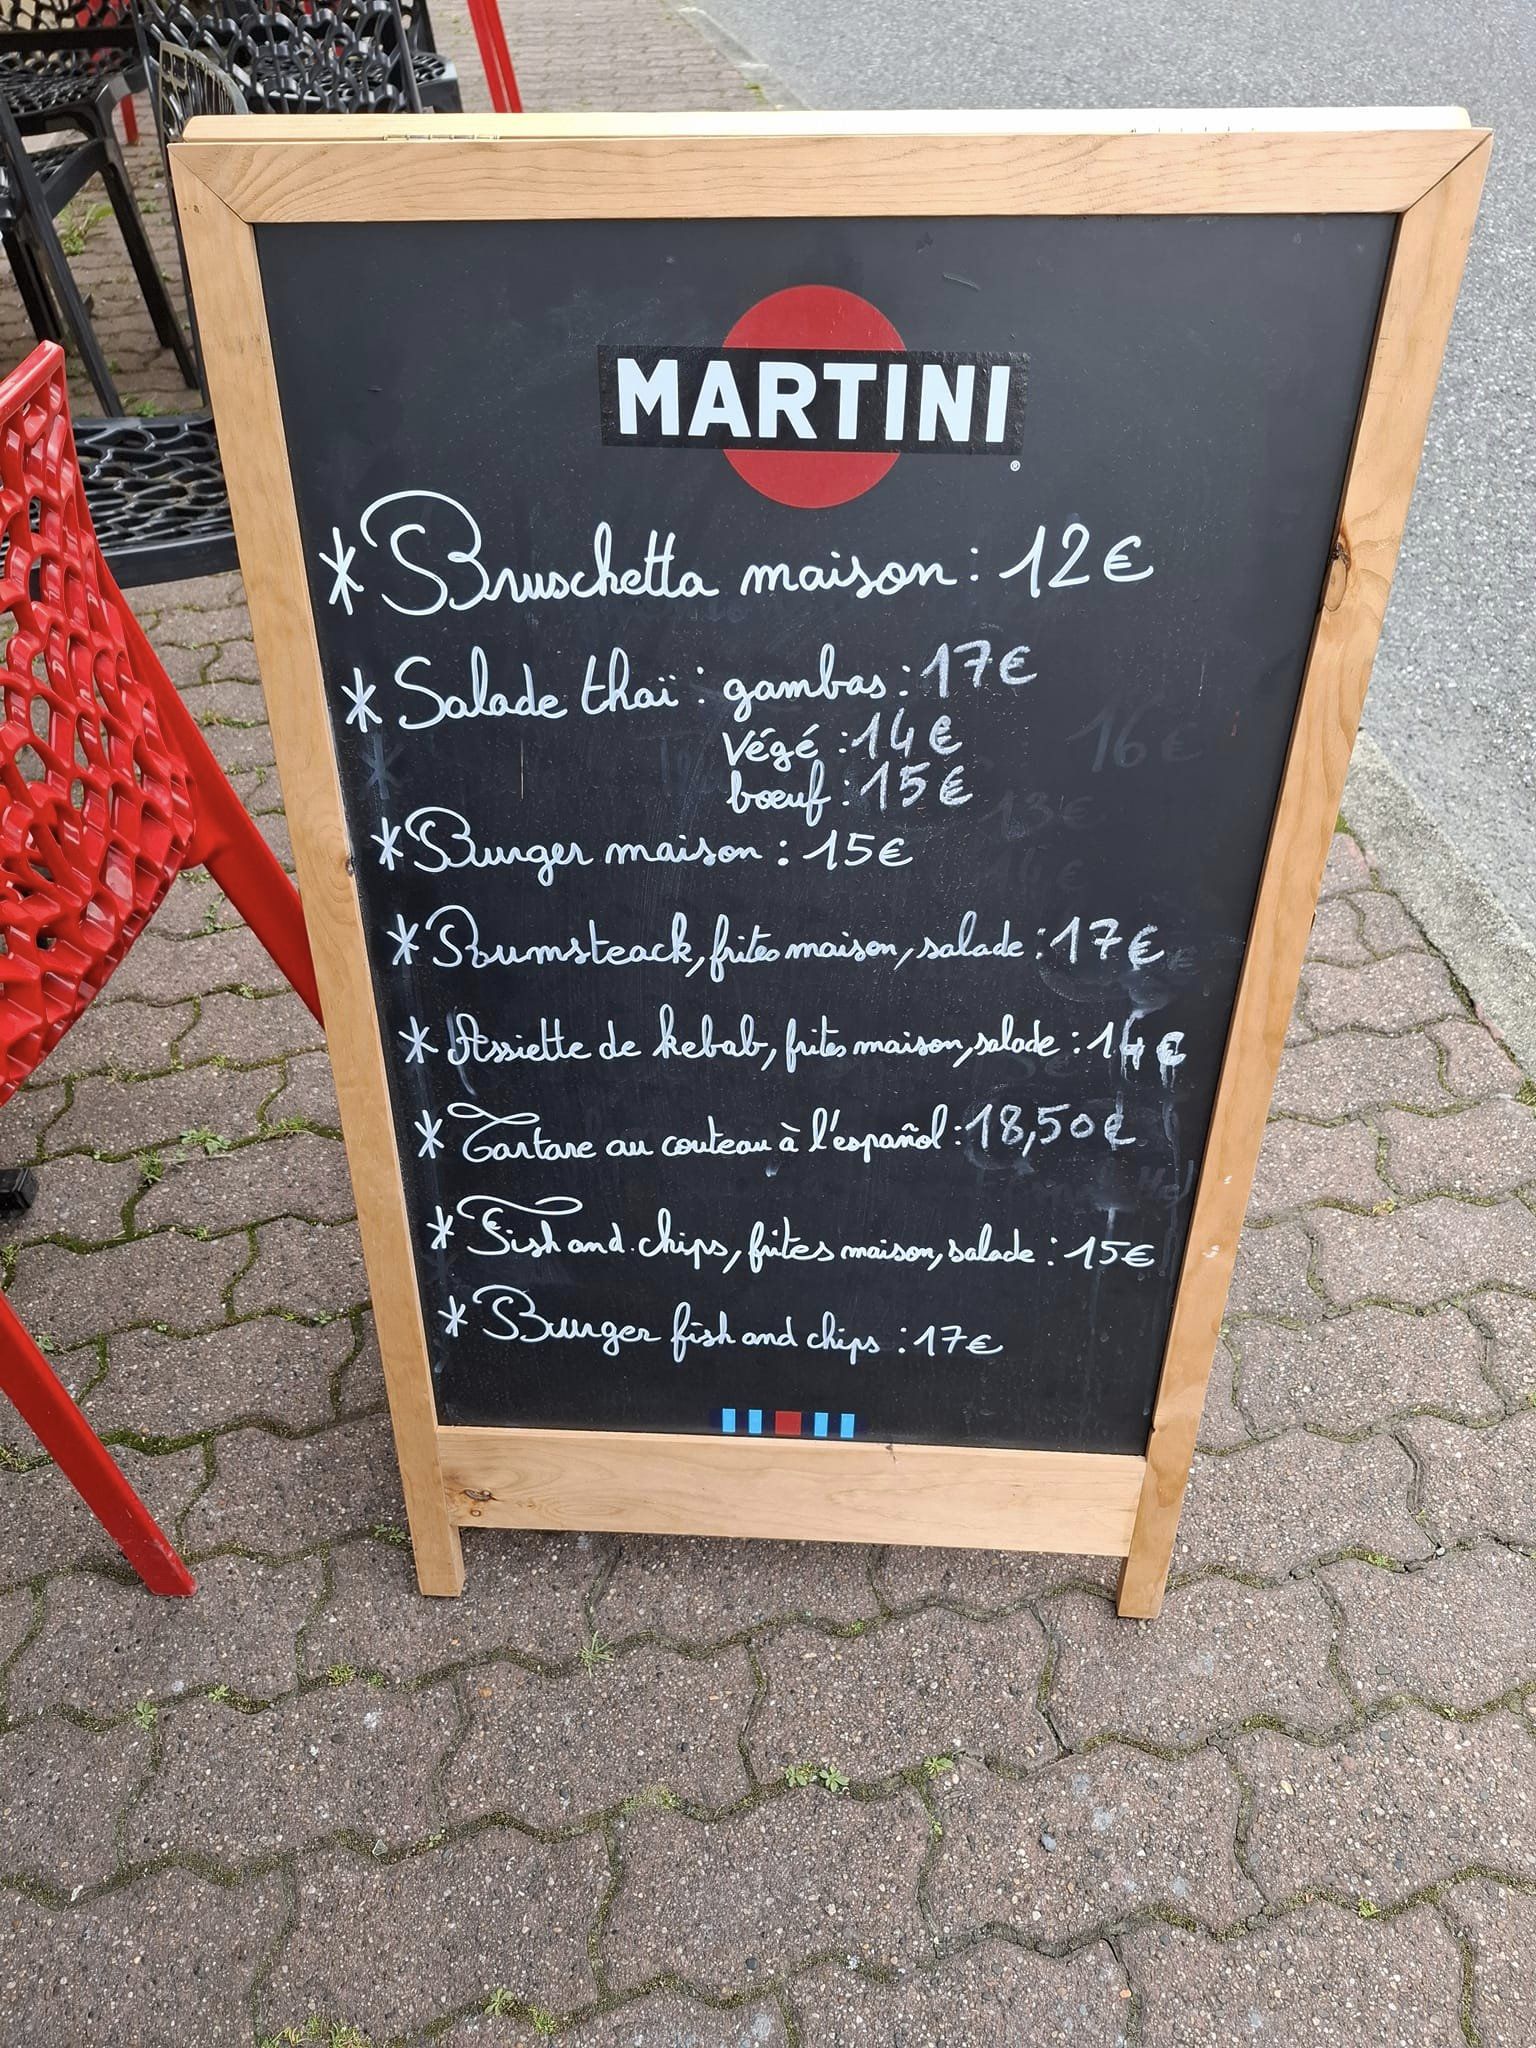 MARTINI
®
* Bruschetta maison : 12€
* Salade thaï : gambas : 17€
végé : 14€
bœuf : 15€
* Burger maison : 15€
* Rumsteack, frites maison, salade : 17€
* Assiette de kebab, frites maison, salade : 14€
* Tartare au couteau à l'español : 18,50€
* Fish and chips, frites maison, salade : 15€
* Burger fish and chips : 17€